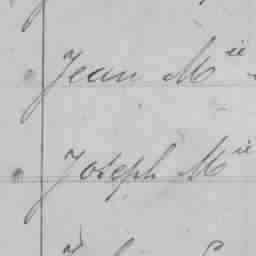 Jean M^ie
Joseph M^ie